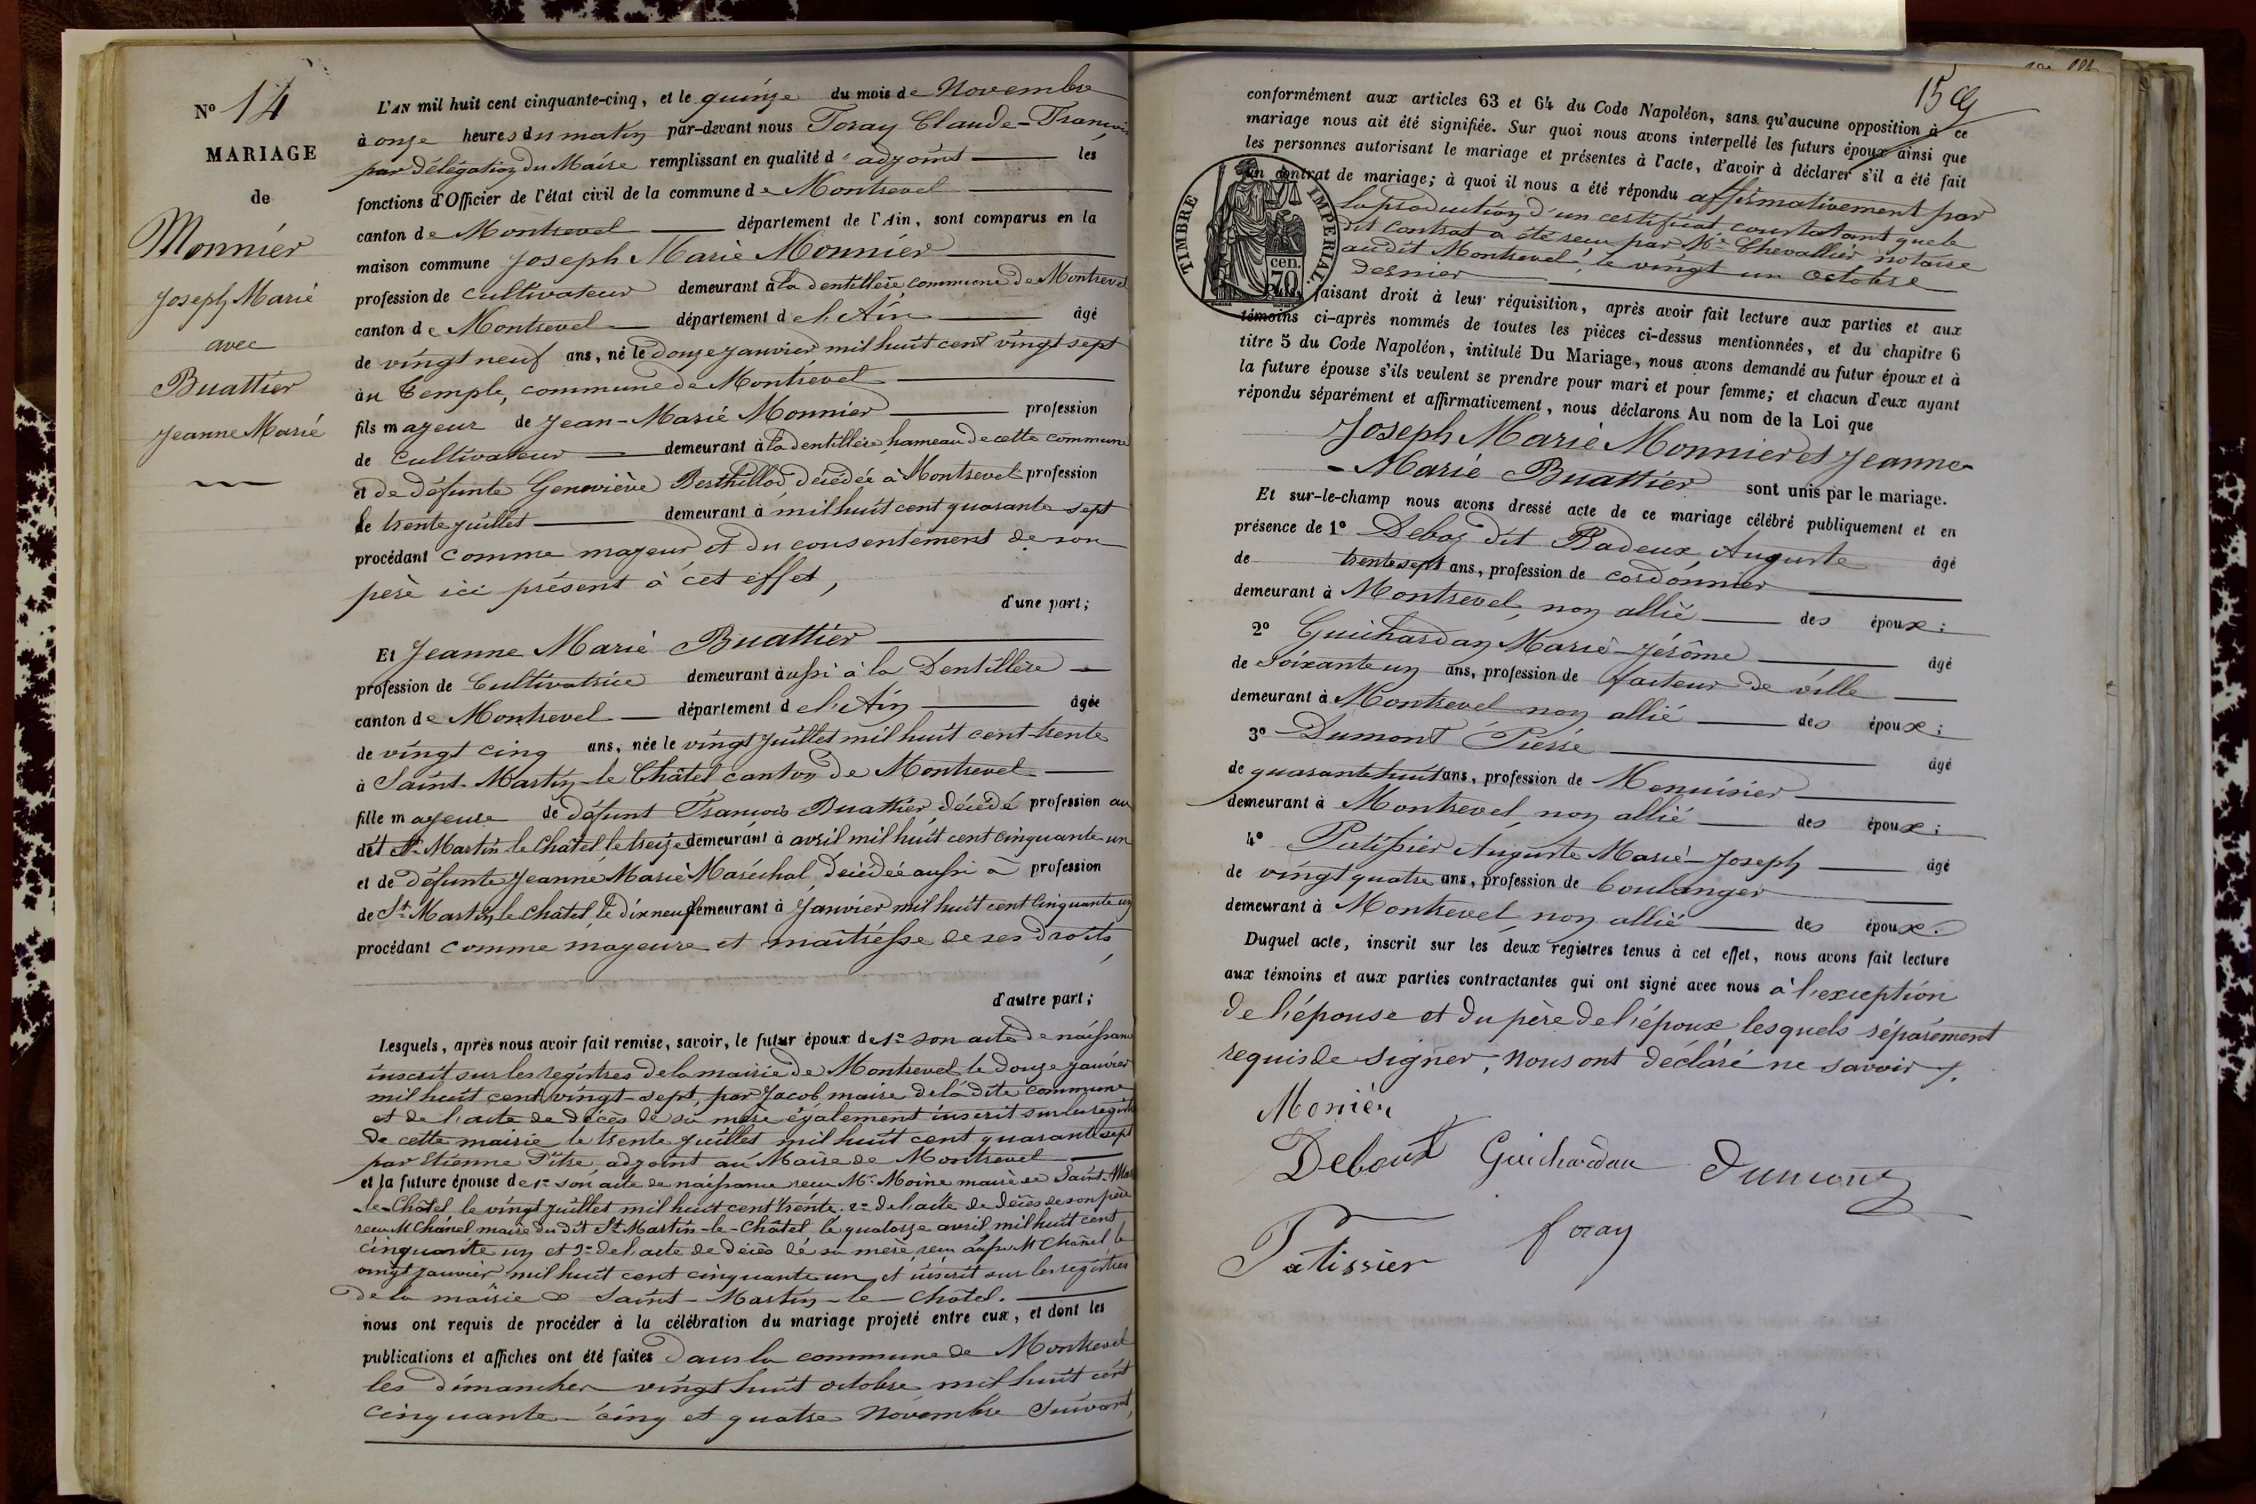 Nº 14
MARIAGE
de
Monnier
Joseph Marie
avec
Buattier
Jeanne Marie
L'AN mil huit cent cinquante-cinq, et le quinze du mois de Novembre
à onze heures du matin par-devant nous Foray Claude-François,
par délégation du Maire remplissant en qualité d'adjoint les
fonctions d'Officier de l'état civil de la commune de Montrevel
canton de Montrevel département de l'Ain, sont comparus en la
maison commune Joseph Marie Monnier
profession de cultivateur demeurant à la dentillère commune de Montrevel
canton de Montrevel département de l'Ain âgé
de vingt neuf ans, né le Douze janvier mil huit cent vingt sept
au Temple, commune de Montrevel
fils majeur de Jean-Marie Monnier profession
de cultivateur demeurant à la dentillère, hameau de cette commune
et de défunte Geneviève Berthillod, décédée à Montrevel profession
le trente juillet demeurant à mil huit cent quarante sept
procédant comme majeur et du consentement de son
père ici présent à cet effet,
d'une part;
Et Jeanne Marie Buattier
profession de Cultivatrice demeurant aussi à la Dentillère
canton de Montrevel département de l'Ain âgée
de vingt cinq ans, née le vingt juillet mil huit cent trente
à Saint-Martin-le-Châtel canton de Montrevel
fille majeure de défunt François Buattier, décédé profession au
dit St Martin-le-Châtel, le treize demeurant à avril mil huit cent cinquante un
et de défunte Jeanne Marie Maréchal, décédée aussi à profession
de St Martin le Châtel le dix neuf demeurant à Janvier mil huit cent cinquante un
procédant comme majeure et maîtresse de ses droits,
d'autre part;
Lesquels, après nous avoir fait remise, savoir, le futur époux de 1º son acte de naissance
inscrit sur les registres de la mairie de Montrevel le douze janvier
mil huit cent vingt-sept, par Jacob, maire de la dite commune
et de l'acte de décès de sa mère également inscrit sur les registres
de cette mairie le trente juillet mil huit cent quarante sept
par Etienne Pitre adjoint au Maire de Montrevel
et la future épouse de 1º son acte de naissance reçu Mr Moine maire de Saint-Martin
-le-Châtel le vingt juillet mil huit cent trente. 2º de l'acte de décès de son père
reçu M Chanel maire du dit St Martin-le-Châtel le quatorze avril mil huit cent
cinquante un et 3º de l'acte de décès de sa mère reçu aussi Mr Chanel le
vingt janvier mil huit cent cinquante un et inscrit sur les registres
de la mairie de Saint-Martin-le-Châtel.
nous ont requis de procéder à la célébration du mariage projeté entre eux, et dont les
publications et affiches ont été faites dans la commune de Montrevel
les dimanches vingt huit octobre mil huit cent
cinquante-cinq et quatre Novembre Suivant,
159
conformément aux articles 63 et 64 du Code Napoléon, sans qu'aucune opposition à ce
mariage nous ait été signifiée. Sur quoi nous avons interpellé les futurs époux ainsi que
les personnes autorisant le mariage et présentes à l'acte, d'avoir à déclarer s'il a été fait
un contrat de mariage; à quoi il nous a été répondu affirmativement par
la production d'un certificat constatant que le
dit contrat a été reçu par Me Chevallier notaire
audit Montrevel, le vingt un octobre
dernier
TIMBRE IMPERIAL.
70 cen.
Puis, faisant droit à leur réquisition, après avoir fait lecture aux parties et aux
témoins ci-après nommés de toutes les pièces ci-dessus mentionnées, et du chapitre 6
titre 5 du Code Napoléon, intitulé Du Mariage, nous avons demandé au futur époux et à
la future épouse s'ils veulent se prendre pour mari et pour femme; et chacun d'eux ayant
répondu séparément et affirmativement, nous déclarons Au nom de la Loi que
Joseph Marie Monnier et Jeanne-
-Marie Buattier sont unis par le mariage.
Et sur-le-champ nous avons dressé acte de ce mariage célébré publiquement et en
présence de 1º Deboz dit Badeux, Auguste âgé
de trente sept ans, profession de cordonnier
demeurant à Montrevel, non allié des époux:
2º Guichardan Marie-Jérôme âgé
de soixante un ans, profession de facteur de ville
demeurant à Montrevel non allié des époux:
3º Dumont Pierre âgé
de quarante huit ans, profession de Menuisier
demeurant à Montrevel non allié des époux:
4º Patissier Auguste Marie-Joseph âgé
de vingt quatre ans, profession de boulanger
demeurant à Montrevel non allié des époux.
Duquel acte, inscrit sur les deux registres tenus à cet effet, nous avons fait lecture
aux témoins et aux parties contractantes qui ont signé avec nous à l'exception
de l'épouse et du père de l'époux lesquels séparément
requis de signer, nous ont déclaré ne savoir.
Monier
Guichardan
Dumont
Patissier
foray